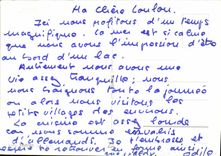 Ma Chère Loulou.
Ici nous profitons d'un temps
magnifique. La mer est si calme
que nous avons l'impression d'être
au bord d'un lac.
Autrement nous avons une
vie assez tranquille; nous
nous baignons toute la journée
ou alors nous visitons les
petits villages des environs.
La est assez
car nous sommes envahis
d'allemands. Je t'embrasse et
espère te retrouver en aussi